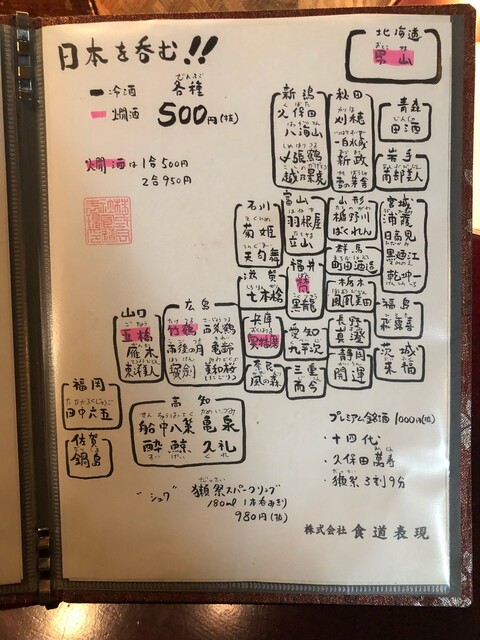 日本を呑む!!
冷酒
燗酒
各種
500円(抜)
燗酒は1合500円
2合950円
北海道
男山
青森
田酒
秋田
刈穂
一白水成
新政
雪の茅舎
岩手
南部美人
新潟
久保田
八海山
〆張鶴
越乃景虎
宮城
浦霞
日高見
墨廼江
乾坤一
山形
楯野川
ばくれん
富山
羽根屋
立山
石川
菊姫
天狗舞
群馬
町田酒造
福井
黒龍
滋賀
七本槍
栃木
鳳凰美田
福島
飛露喜
長野
真澄
茨城
来福
愛知
九平次
静岡
開運
三重
而今
奈良
風の森
兵庫
奥播磨
広島
竹鶴
西條鶴
雨後の月
亀齢
寳剣
美和桜
山口
五橋
雁木
東洋美人
福岡
田中六五
佐賀
鍋島
高知
船中八策
亀泉
酔鯨
久礼
プレミアム銘酒 1000円(抜)
・十四代
・久保田 萬寿
・獺祭 3割9分
"シュワ" 獺祭スパークリング
180ml 1本のみきり
980円(抜)
株式会社 食道表現